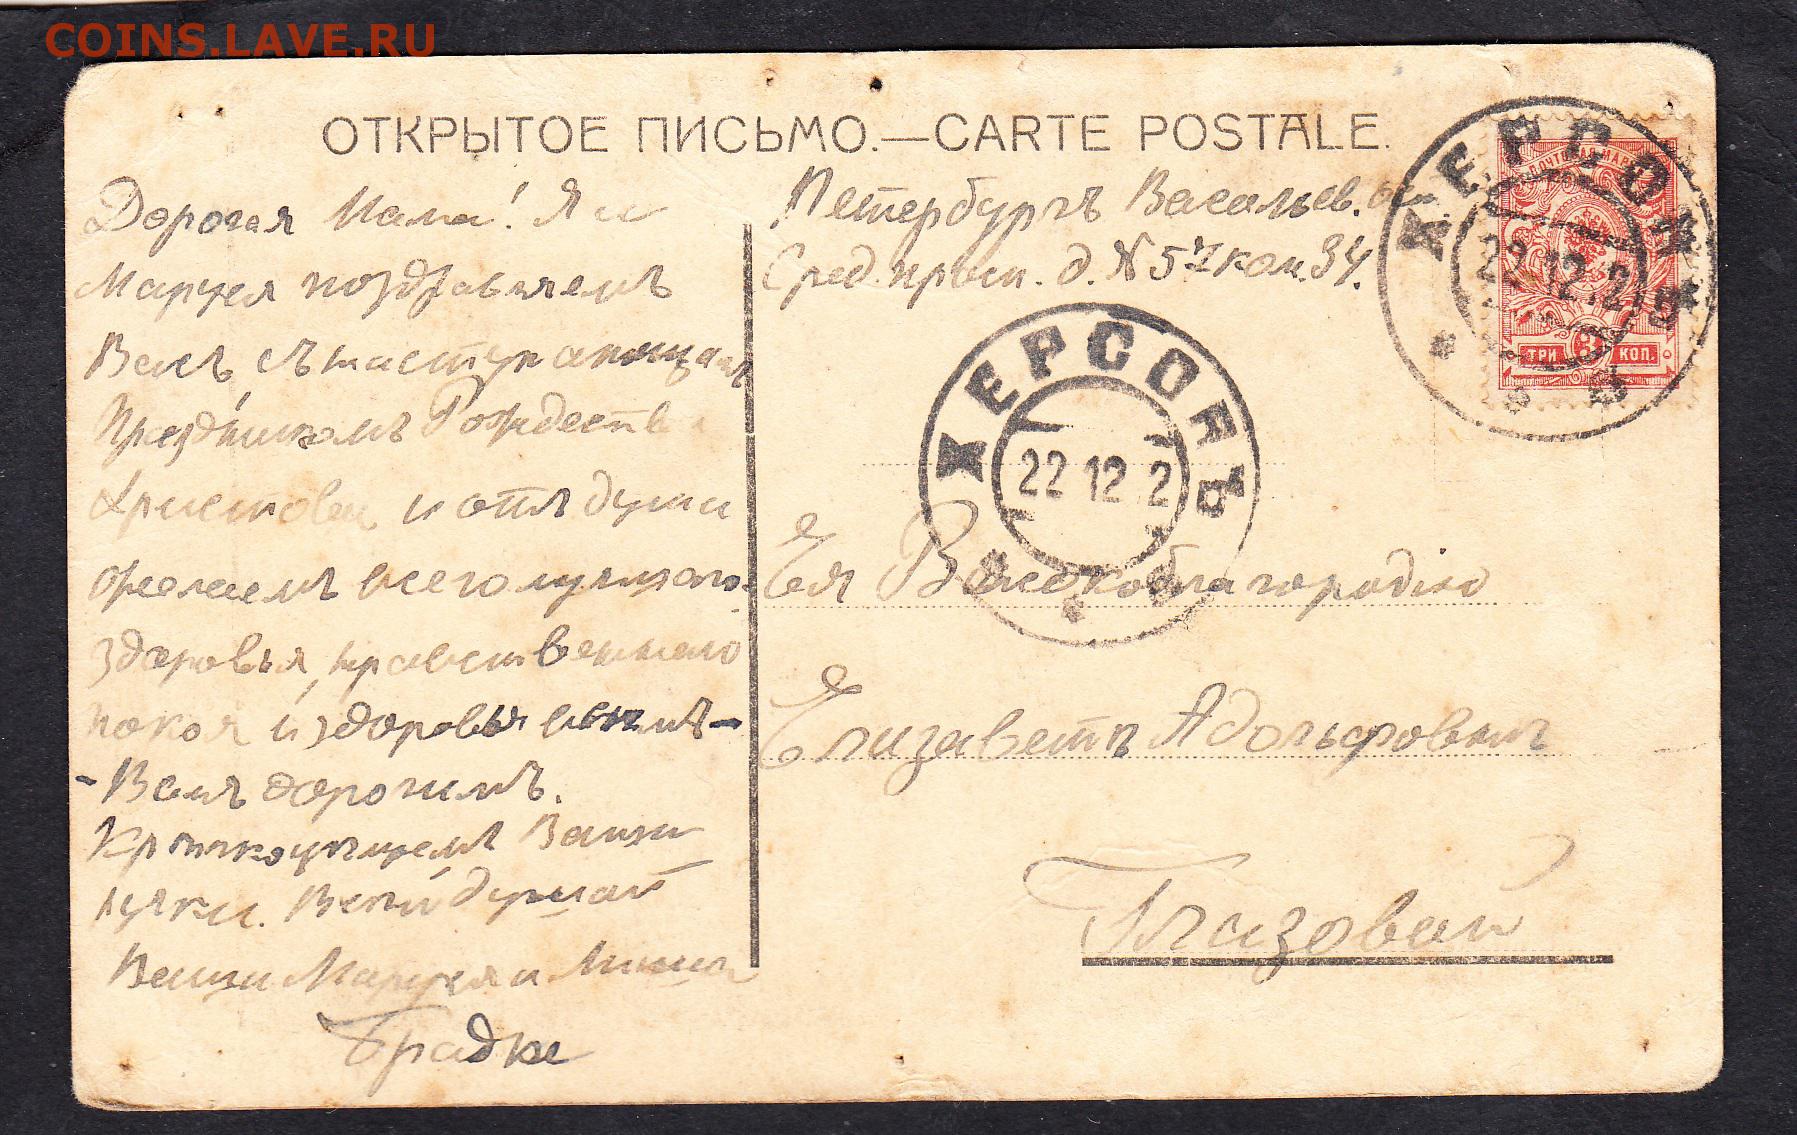 COINS.LAVE.RU
ОТКРЫТОЕ ПИСЬМО.—CARTE POSTALE.
Дорогая Мама! Я и
Маруся поздравляемъ
Васъ съ наступающимъ
Праздникомъ Рождества
Христова и отъ души
желаемъ всего лучшаго
здоровья, нравственнаго
покоя и здоровья всѣмъ-
-Вамъ дорогимъ.
Крѣпко цѣлуемъ Ваши
ручки. Всей душой
Ваши Маруся и Миша
Брадке
Петербургъ Васильев. ост.
Сред. просп. д. № 57 ком. 34.
Ея Высокоблагородію
Елизаветѣ Адольфовнѣ
Глизовой
ХЕРСОНЪ
22 12 12
ТРИ 3 КОП.
ПОЧТОВАЯ МАРКА
ХЕРСОНЪ
22 12 2